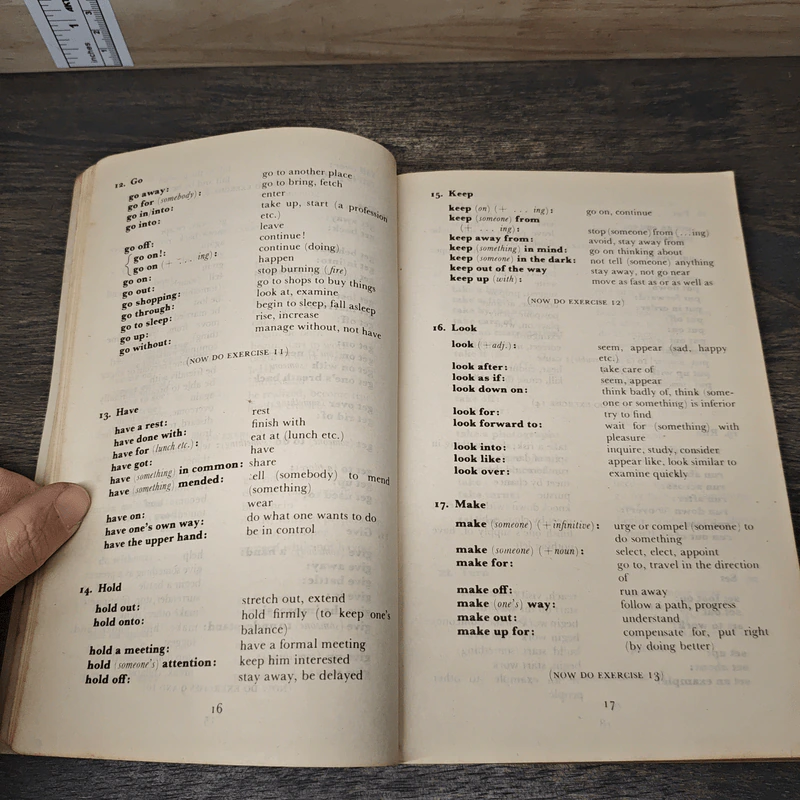 12. Go
go away: go to another place
go for (somebody): go to bring, fetch
go in/into: enter
go into: take up, start (a profession
etc.)
go off: leave
go on!: continue!
go on (+ ... ing): continue (doing)
go on: happen
go out: stop burning (fire)
go shopping: go to shops to buy things
go through: look at, examine
go to sleep: begin to sleep, fall asleep
go up: rise, increase
go without: manage without, not have
(NOW DO EXERCISE 11)
13. Have
have a rest: rest
have done with: finish with
have for (lunch etc.): eat at (lunch etc.)
have got: have
have (something) in common: share
have (something) mended: tell (somebody) to mend
(something)
have on: wear
have one's own way: do what one wants to do
have the upper hand: be in control
14. Hold
hold out: stretch out, extend
hold onto: hold firmly (to keep one's
balance)
hold a meeting: have a formal meeting
hold (someone's) attention: keep him interested
hold off: stay away, be delayed
16
15. Keep
keep (on) (+ ... ing): go on, continue
keep (someone) from
(+ ... ing): stop (someone) from (...ing)
keep away from: avoid, stay away from
keep (something) in mind: go on thinking about
keep (someone) in the dark: not tell (someone) anything
keep out of the way stay away, not go near
keep up (with): move as fast as or as well as
(NOW DO EXERCISE 12)
16. Look
look (+adj.): seem, appear (sad, happy
etc.)
look after: take care of
look as if: seem, appear
look down on: think badly of, think (some-
one or something) is inferior
look for: try to find
look forward to: wait for (something) with
pleasure
look into: inquire, study, consider
look like: appear like, look similar to
look over: examine quickly
17. Make
make (someone) (+infinitive): urge or compel (someone) to
do something
make (someone) (+noun): select, elect, appoint
make for: go to, travel in the direction
of
make off: run away
make (one's) way: follow a path, progress
make out: understand
make up for: compensate for, put right
(by doing better)
(NOW DO EXERCISE 13)
17
inches
1
2
1
2
3